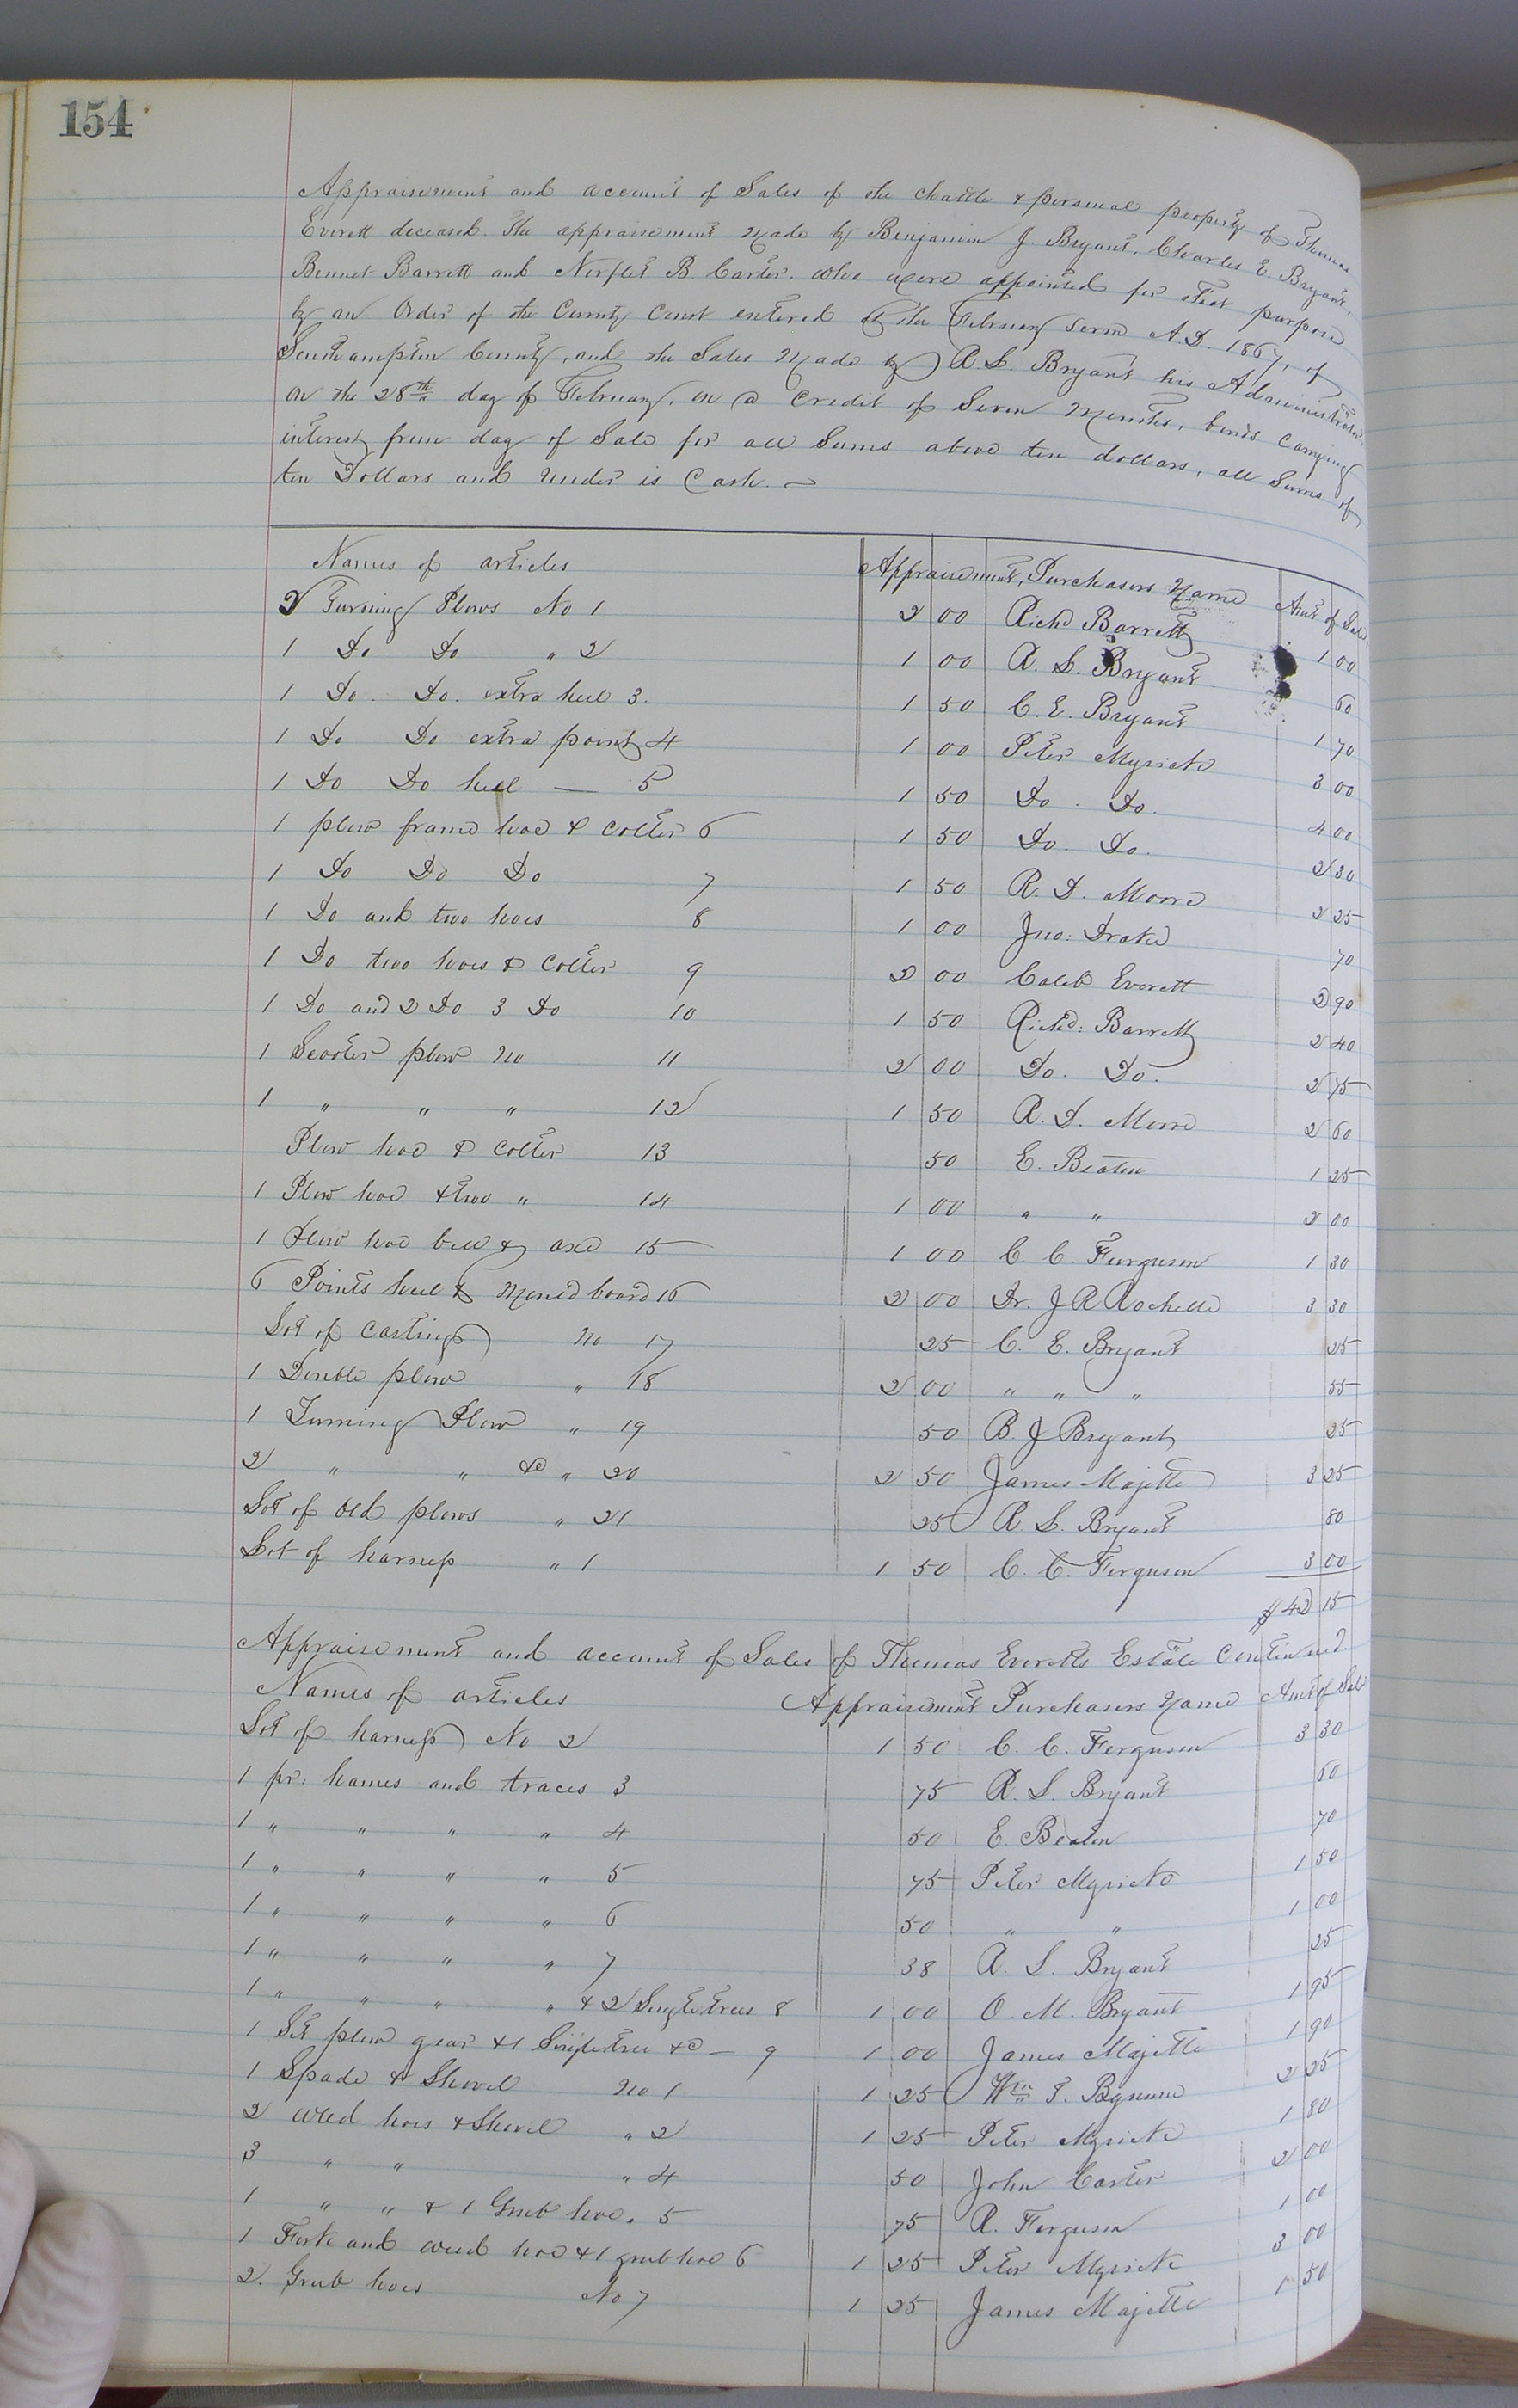 154
Appraisement and account of Sales of the chattle & personal property of Thomas
Everett deceased. The appraisement made by Benjamin J. Bryant, Charles E. Bryant,
Bennet Barrett and B. Carter, who were appointed for that purpose
by an Order of the County Court entered at the February Term A.D. 1867, of
Southampton County, and the Sales made by R. S. Bryant his Administrator,
on the 28th day of February, on a credit of Seven Months, bonds carrying
interest from day of Sale for all Sums above ten dollars, all Sums of
ten Dollars and under is Cash.
Names of articles Appraisement, Purchasers Name Amt of Sale
2 Turning Plows No 1 2 00 Richd Barrett 1 00
1 Do Do " 2 1 00 R. S. Bryant 60
1 Do. Do. extra heel 3. 1 50 C. E. Bryant 1 70
1 Do Do extra point 4 1 00 Peter Myrick 3 00
1 Do Do heel — 5 1 50 Do. Do. 4 00
1 plow frame hoe & Colter 6 1 50 Do. Do. 2 30
1 Do Do Do 7 1 50 R. D. Moore 2 25
1 Do and two hoes 8 1 00 Jno: Drake 70
1 Do two hoes & Colter 9 2 00 Caleb Everett 2 90
1 Do and 2 Do 3 Do 10 1 50 Richd: Barrett 2 40
1 Scooter plow No 11 2 00 Do. Do. 2 75
1 " " " 12 1 50 R. D. Moore 2 60
Plow hoe & Colter 13 50 E. Beaton 1 25
1 Plow hoe & two " 14 1 00 " " 2 00
1 Plow hoe bell & axe 15 1 00 C. C. Furguson 1 30
6 Points heel & board 16 2 00 Dr. J R Rochelle 3 30
Lot of Castings No 17 25 C. E. Bryant 25
1 Double plow " 18 2 00 " " " 55
1 Turning Plow " 19 50 B. J Bryant 25
2 " " &c " 20 2 50 James Majette 3 25
Lot of old plows " 21 25 R. S. Bryant 80
Lot of harness " 1 1 50 C. C. Ferguson 3 00
$42 15
Appraisement and account of Sales of Thomas Everetts Estate Continued.
Names of articles Appraisement Purchasers Name Amt of Sale
Lot of harness No 2 1 50 C. C. Ferguson 3 30
1 pr. hames and traces 3 75 R. S. Bryant 60
1 " " " " 4 50 E. Beaton 70
1 " " " " 5 75 Peter Myrick 1 50
1 " " " " 6 50 " " 1 00
1 " " " " 7 38 R. S. Bryant 25
1 " " " " & 2 Singletrees 8 1 00 O. M. Bryant 1 95
1 Set plow gear & 1 Singletree &c — 9 1 00 James Majette 1 90
1 Spade & Shovel No 1 1 25 Wm T. Bynum 2 25
2 weed hoes & Shovel " 2 1 25 Peter Myrick 1 80
3 " " " 4 50 John Carter 2 00
1 " " & 1 Grub hoe. 5 75 R. Ferguson 1 00
1 Fork and weed hoe & 1 grub hoe 6 1 25 Peter Myrick 3 00
2. Grub hoes No 7 1 25 James Majette 1 50